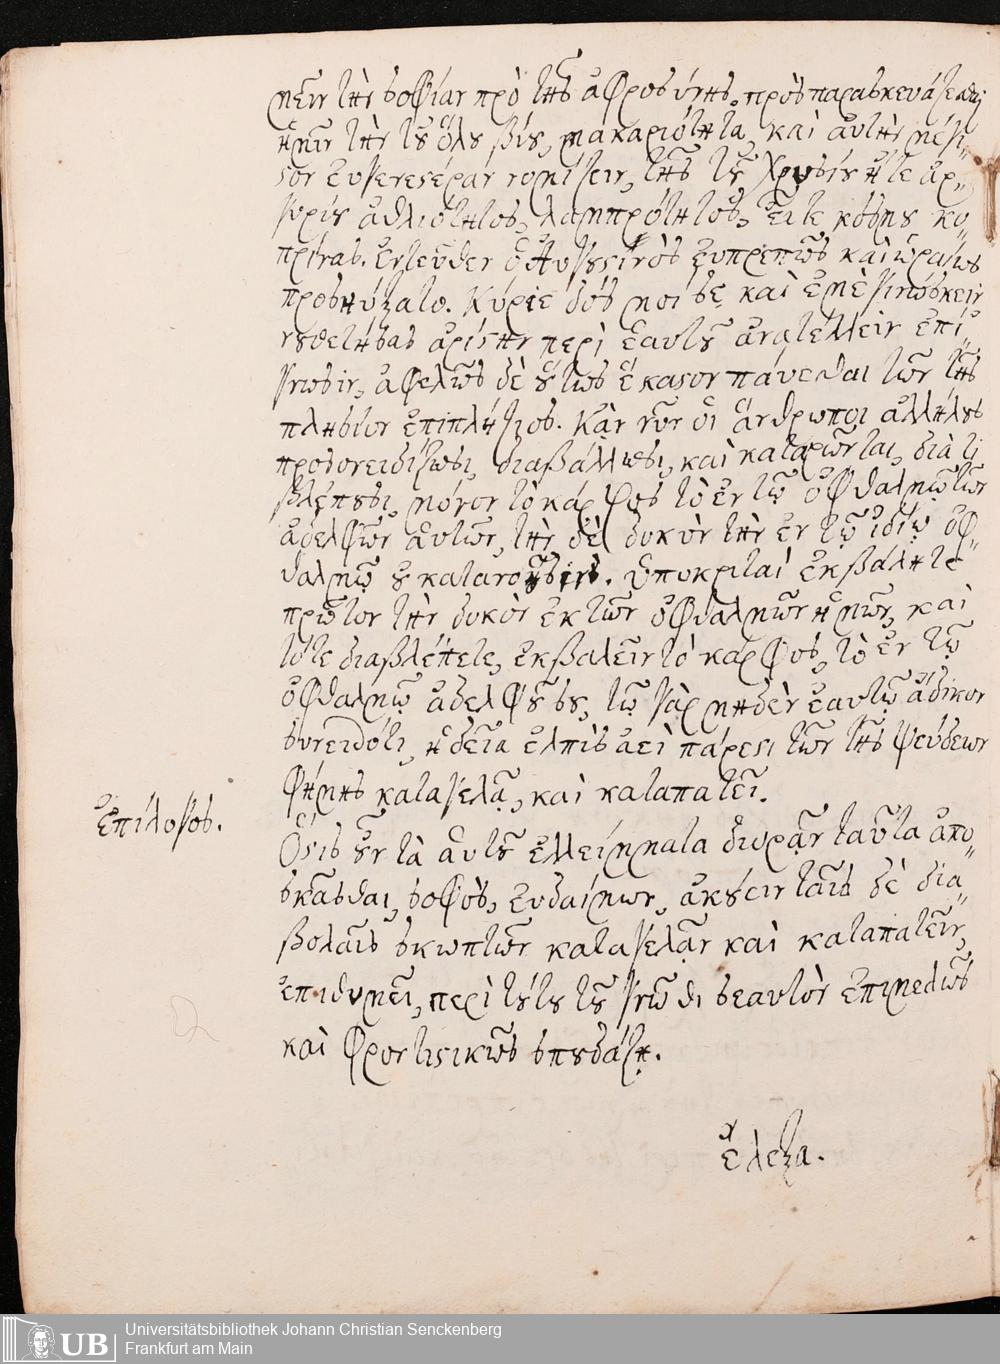 μεῖν τὴν σοφίαν πρὸ τῆς ἀφροσύνης, προσπαρασκευάζεσθαι
ἡμῖν τὴν τοῦ ὅλου βίου, μακαριότητα, καὶ αὐτὴν μέγι-
στον εὐγενεστέραν νομίζειν, τῆς τοῦ χρυσίου ἤτε ἀρ-
γυρίου ἀθλιότητος, λαμπρότητος, εἴτε κόσμου κο-
πρίνας. ἐντεῦθεν ὁ Αὐγουστῖνος εὐπρεπῶς καὶ ὡραίως
προσηύξατο. Κύριε δός μοι σὲ καὶ ἐμὲ γινώσκειν
νουθετήσας ἀρίστην περὶ ἑαυτοῦ ἀνατέλλειν ἐπί-
γνωσιν, ἀφελῶς δὲ οὕτως ἕκαστον παύεσθαι τῶν τῆς
πλησίον ἐπιπλήξιος. Κᾂν νῦν οἱ ἄνθρωποι ἀλλήλους
προσονειδίζωσι, διαβάλλωσι, καὶ καταρῶνται, διὰ τί
βλέπουσι μόνον τὸ κάρφος τὸ ἐν τῷ ὀφθαλμῷ τῶν
ἀδελφῶν αὐτῶν, τὴν δὲ δοκὸν τὴν ἐν τῷ ἰδίῳ ὀφ-
θαλμῷ οὐ κατανοήσειν. ὑποκριταὶ ἐκβάλητε
πρῶτον τὴν δοκὸν ἐκ τῶν ὀφθαλμῶν ἡμῶν, καὶ
τότε διαβλέπετε, ἐκβαλεῖν τὸ κάρφος, τὸ ἐν τῷ
ὀφθαλμῷ ἀδελφοῦ σου, τῷ γὰρ μηδὲν ἑαυτῷ ἄδικον
συνειδότι, ἡδεῖα ἐλπὶς ἀεὶ πάρεστι τῶν τῆς ψεύδεων
φήμης καταγελᾷ, καὶ καταπατεῖ.
Ἐπίλογος.
Ὅστις οὖν τὰ αὑτοῦ ἐλλείμματα διορᾷν ταῦτα ἀπο-
σκᾶσθαι, σοφὸς, εὐδαίμων, ἀκούειν ταῖς δὲ δια-
βολαῖς σκωπτῶν καταγελᾷν καὶ καταπατεῖν,
ἐπιθυμεῖ, περὶ τούτου τοῦ γνῶθι σεαυτὸν ἐπιμελῶς
καὶ φροντιστικῶς σπουδάζῃ.
ἔλεξα.
Universitätsbibliothek Johann Christian Senckenberg
Frankfurt am Main
UB